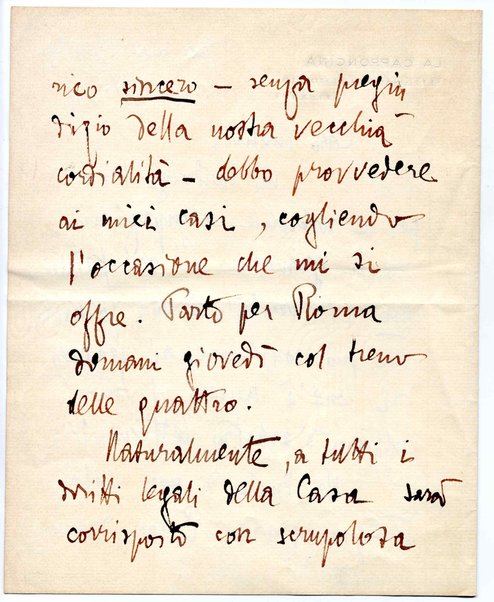 rico sincero – senza pregiu
dizio della nostra vecchia
cordialità – debbo provvedere
ai miei casi, cogliendo
l'occasione che mi si
offre. Parto per Roma
domani giovedì col treno
delle quattro.
Naturalmente, a tutti i
diritti legali della Casa sarà
corrisposto con scrupolosa